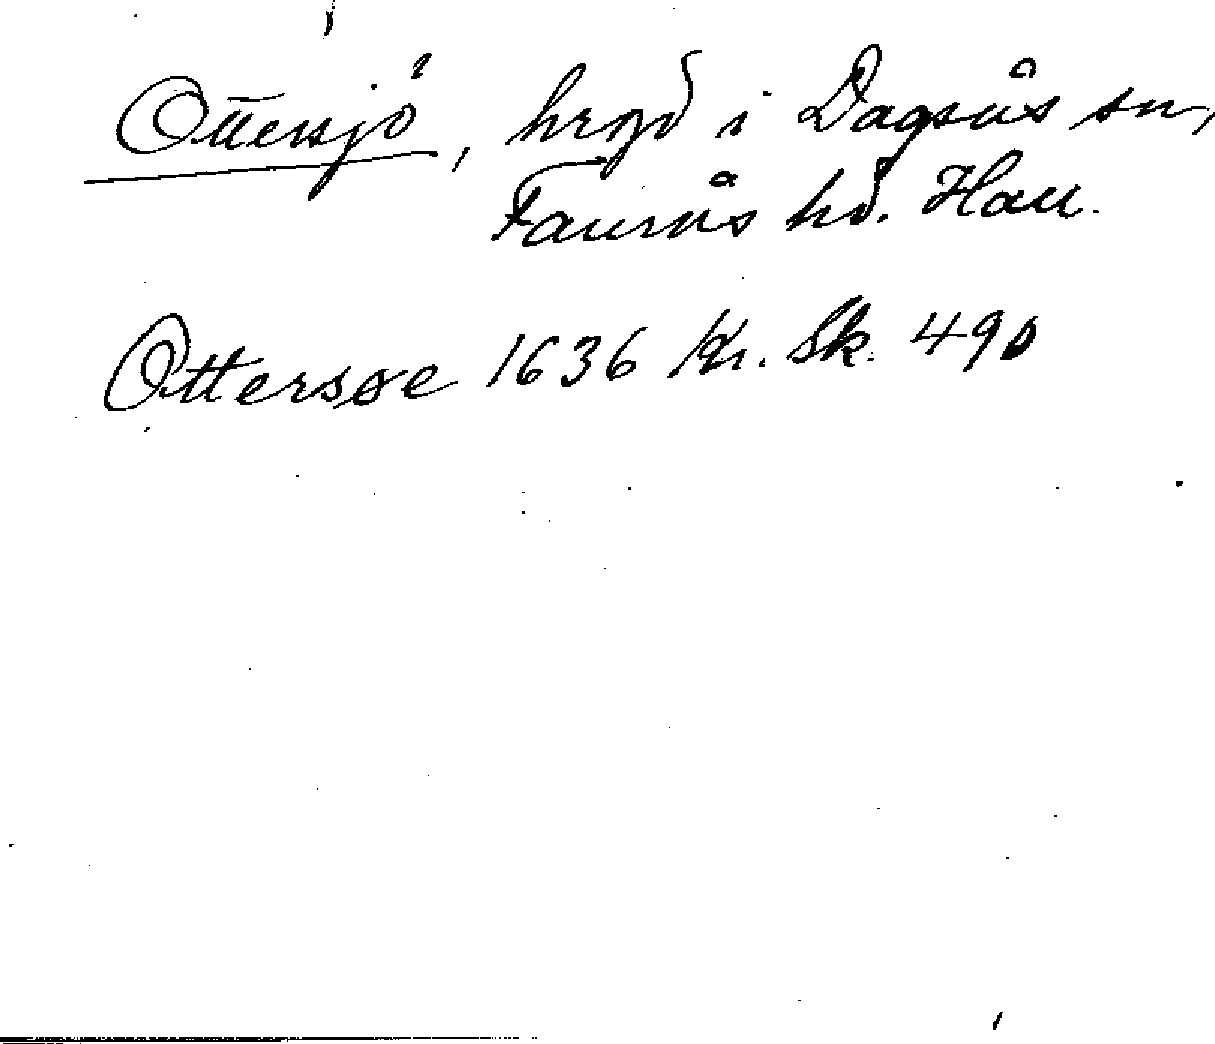 Ottersjö, hmd i Dagsås sn,
Faurås hd. Hall.
Ottersøe 1636 Kr. Sk. 490